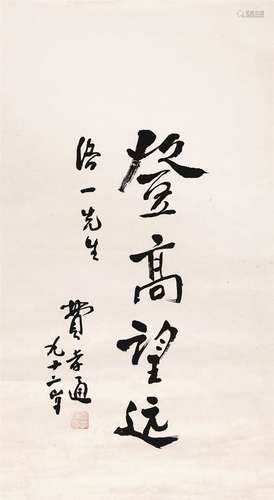 登高望远
一先生
費孝通
九十二岁